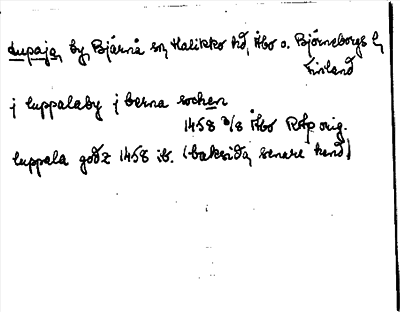 Lupaja, by, Bjärnå sn, Halikko hd, Åbo o. Björneborgs l,
Finland
j luppalaby j berna sochen
1458 3/8 Åbo RAp orig.
luppala godz 1458 ib. (baksida, senare hand)